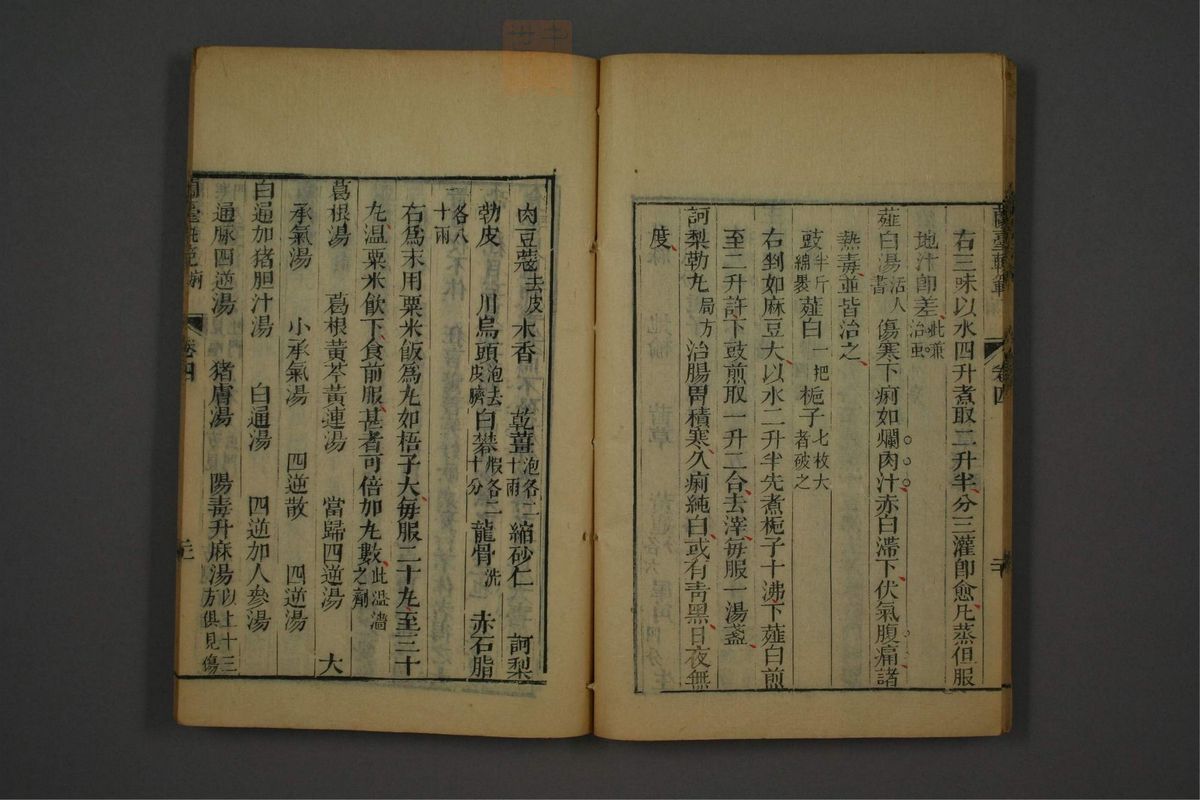 蘭臺軌範 卷四 二十
右三味以水四升煮取二升半分三灌卽愈凡蒸但服
地汁卽差此兼治蛊
薤白湯活人書 傷寒下痢如爛肉汁赤白滯下伏氣腹痛諸
熱毒並皆治之
豉半斤綿裹 薤白一把 梔子七枚大者破之
右剉如麻豆大以水二升半先煮梔子十沸下薤白煎
至二升許下豉煎取一升二合去滓每服一湯盞
訶梨勒丸局方 治腸胃積寒久痢純白或有靑黑日夜無
度
肉豆蔻去皮 木香 乾薑泡各二十兩 縮砂仁 訶梨
勒皮 川烏頭泡去皮臍 白礬煅各二十分 龍骨洗 赤石脂
各八十兩
右爲末用粟米飯爲丸如梧子大每服二十丸至三十
丸溫粟米飲下食前服甚者可倍加丸數此溢濇之劑
葛根湯 葛根黃芩黃連湯 當歸四逆湯 大
承氣湯 小承氣湯 四逆散 四逆湯
白通加猪胆汁湯 白通湯 四逆加人參湯
通脉四逆湯 猪膚湯 陽毒升麻湯以上十三方俱見傷
蘭臺軌範 痢 卷四